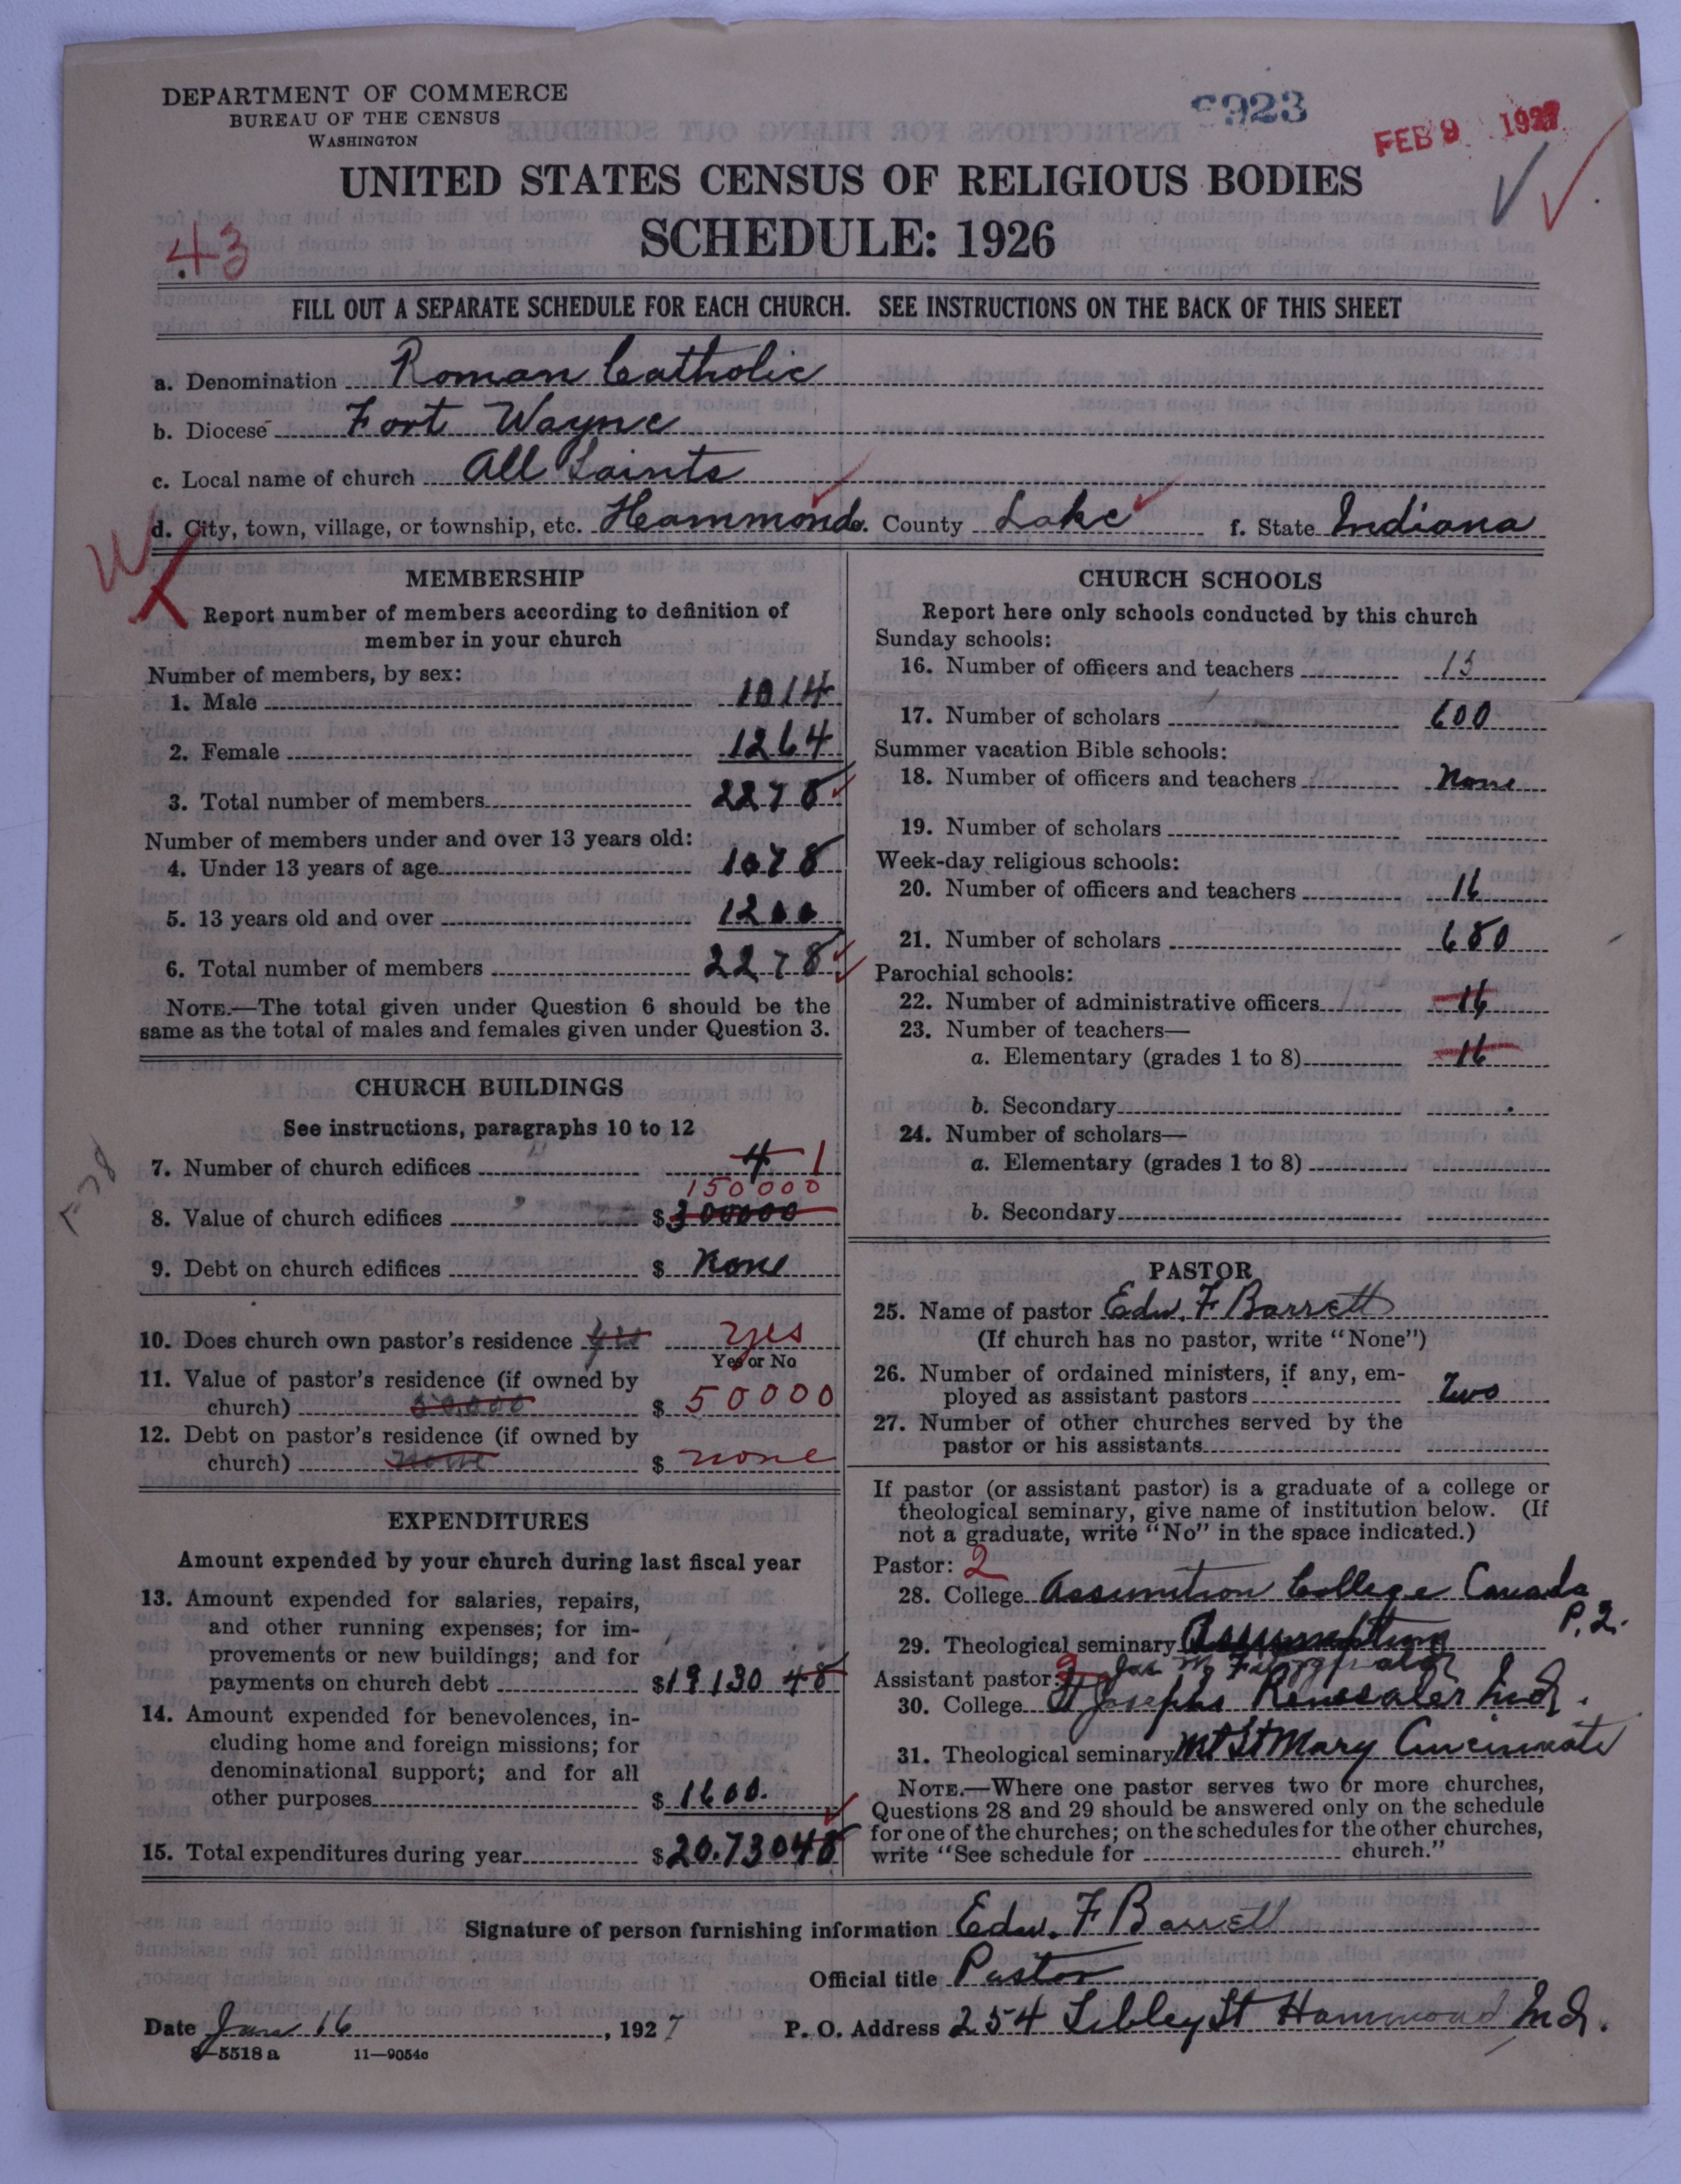 DEPARTMENT OF COMMERCE
BUREAU OF THE CENSUS
WASHINGTON
923
FEB 9 1927
UNITED STATES CENSUS OF RELIGIOUS BODIES
SCHEDULE: 1926
43
FILL OUT A SEPARATE SCHEDULE FOR EACH CHURCH. SEE INSTRUCTIONS ON THE BACK OF THIS SHEET
a. Denomination Roman Catholic
b. Diocese Fort Wayne
c. Local name of church All Saints
d. City, town, village, or township, etc. Hammond e. County Lake f. State Indiana
MEMBERSHIP
Report number of members according to definition of
member in your church
Number of members, by sex:
1. Male 1014
2. Female 1264
3. Total number of members 2278
Number of members under and over 13 years old:
4. Under 13 years of age 1078
5. 13 years old and over 1200
6. Total number of members 2278
NOTE.—The total given under Question 6 should be the
same as the total of males and females given under Question 3.
CHURCH BUILDINGS
See instructions, paragraphs 10 to 12
7. Number of church edifices 4 1
150000
8. Value of church edifices $ 300000
9. Debt on church edifices $ None
10. Does church own pastor's residence yes yes
Yes or No
11. Value of pastor's residence (if owned by
church) 50.000 $ 50000
12. Debt on pastor's residence (if owned by
church) none $ none
EXPENDITURES
Amount expended by your church during last fiscal year
13. Amount expended for salaries, repairs,
and other running expenses; for im-
provements or new buildings; and for
payments on church debt $19130 48
14. Amount expended for benevolences, in-
cluding home and foreign missions; for
denominational support; and for all
other purposes $ 1600.
15. Total expenditures during year $20.73048
CHURCH SCHOOLS
Report here only schools conducted by this church
Sunday schools:
16. Number of officers and teachers 13
17. Number of scholars 600
Summer vacation Bible schools:
18. Number of officers and teachers None
19. Number of scholars
Week-day religious schools:
20. Number of officers and teachers 16
21. Number of scholars 680
Parochial schools:
22. Number of administrative officers 16
23. Number of teachers—
a. Elementary (grades 1 to 8) 16
b. Secondary
24. Number of scholars—
a. Elementary (grades 1 to 8)
b. Secondary
PASTOR
25. Name of pastor Edw. F Barrett
(If church has no pastor, write "None")
26. Number of ordained ministers, if any, em-
ployed as assistant pastors Two
27. Number of other churches served by the
pastor or his assistants
If pastor (or assistant pastor) is a graduate of a college or
theological seminary, give name of institution below. (If
not a graduate, write "No" in the space indicated.)
Pastor: 2
28. College Assumtion College Canada
P.Q.
29. Theological seminary Assumption
Assistant pastor: Jas M Fitzgerald
30. College St Josephs Renesaler Ind.
31. Theological seminary Mt St Mary Cincinnati
NOTE.—Where one pastor serves two or more churches,
Questions 28 and 29 should be answered only on the schedule
for one of the churches; on the schedules for the other churches,
write "See schedule for church."
Signature of person furnishing information Edw. F Barrett
Official title Pastor
Date Jan 16, 1927 P. O. Address 254 Sibley St Hammond Ind.
8—5518 a 11—9054c